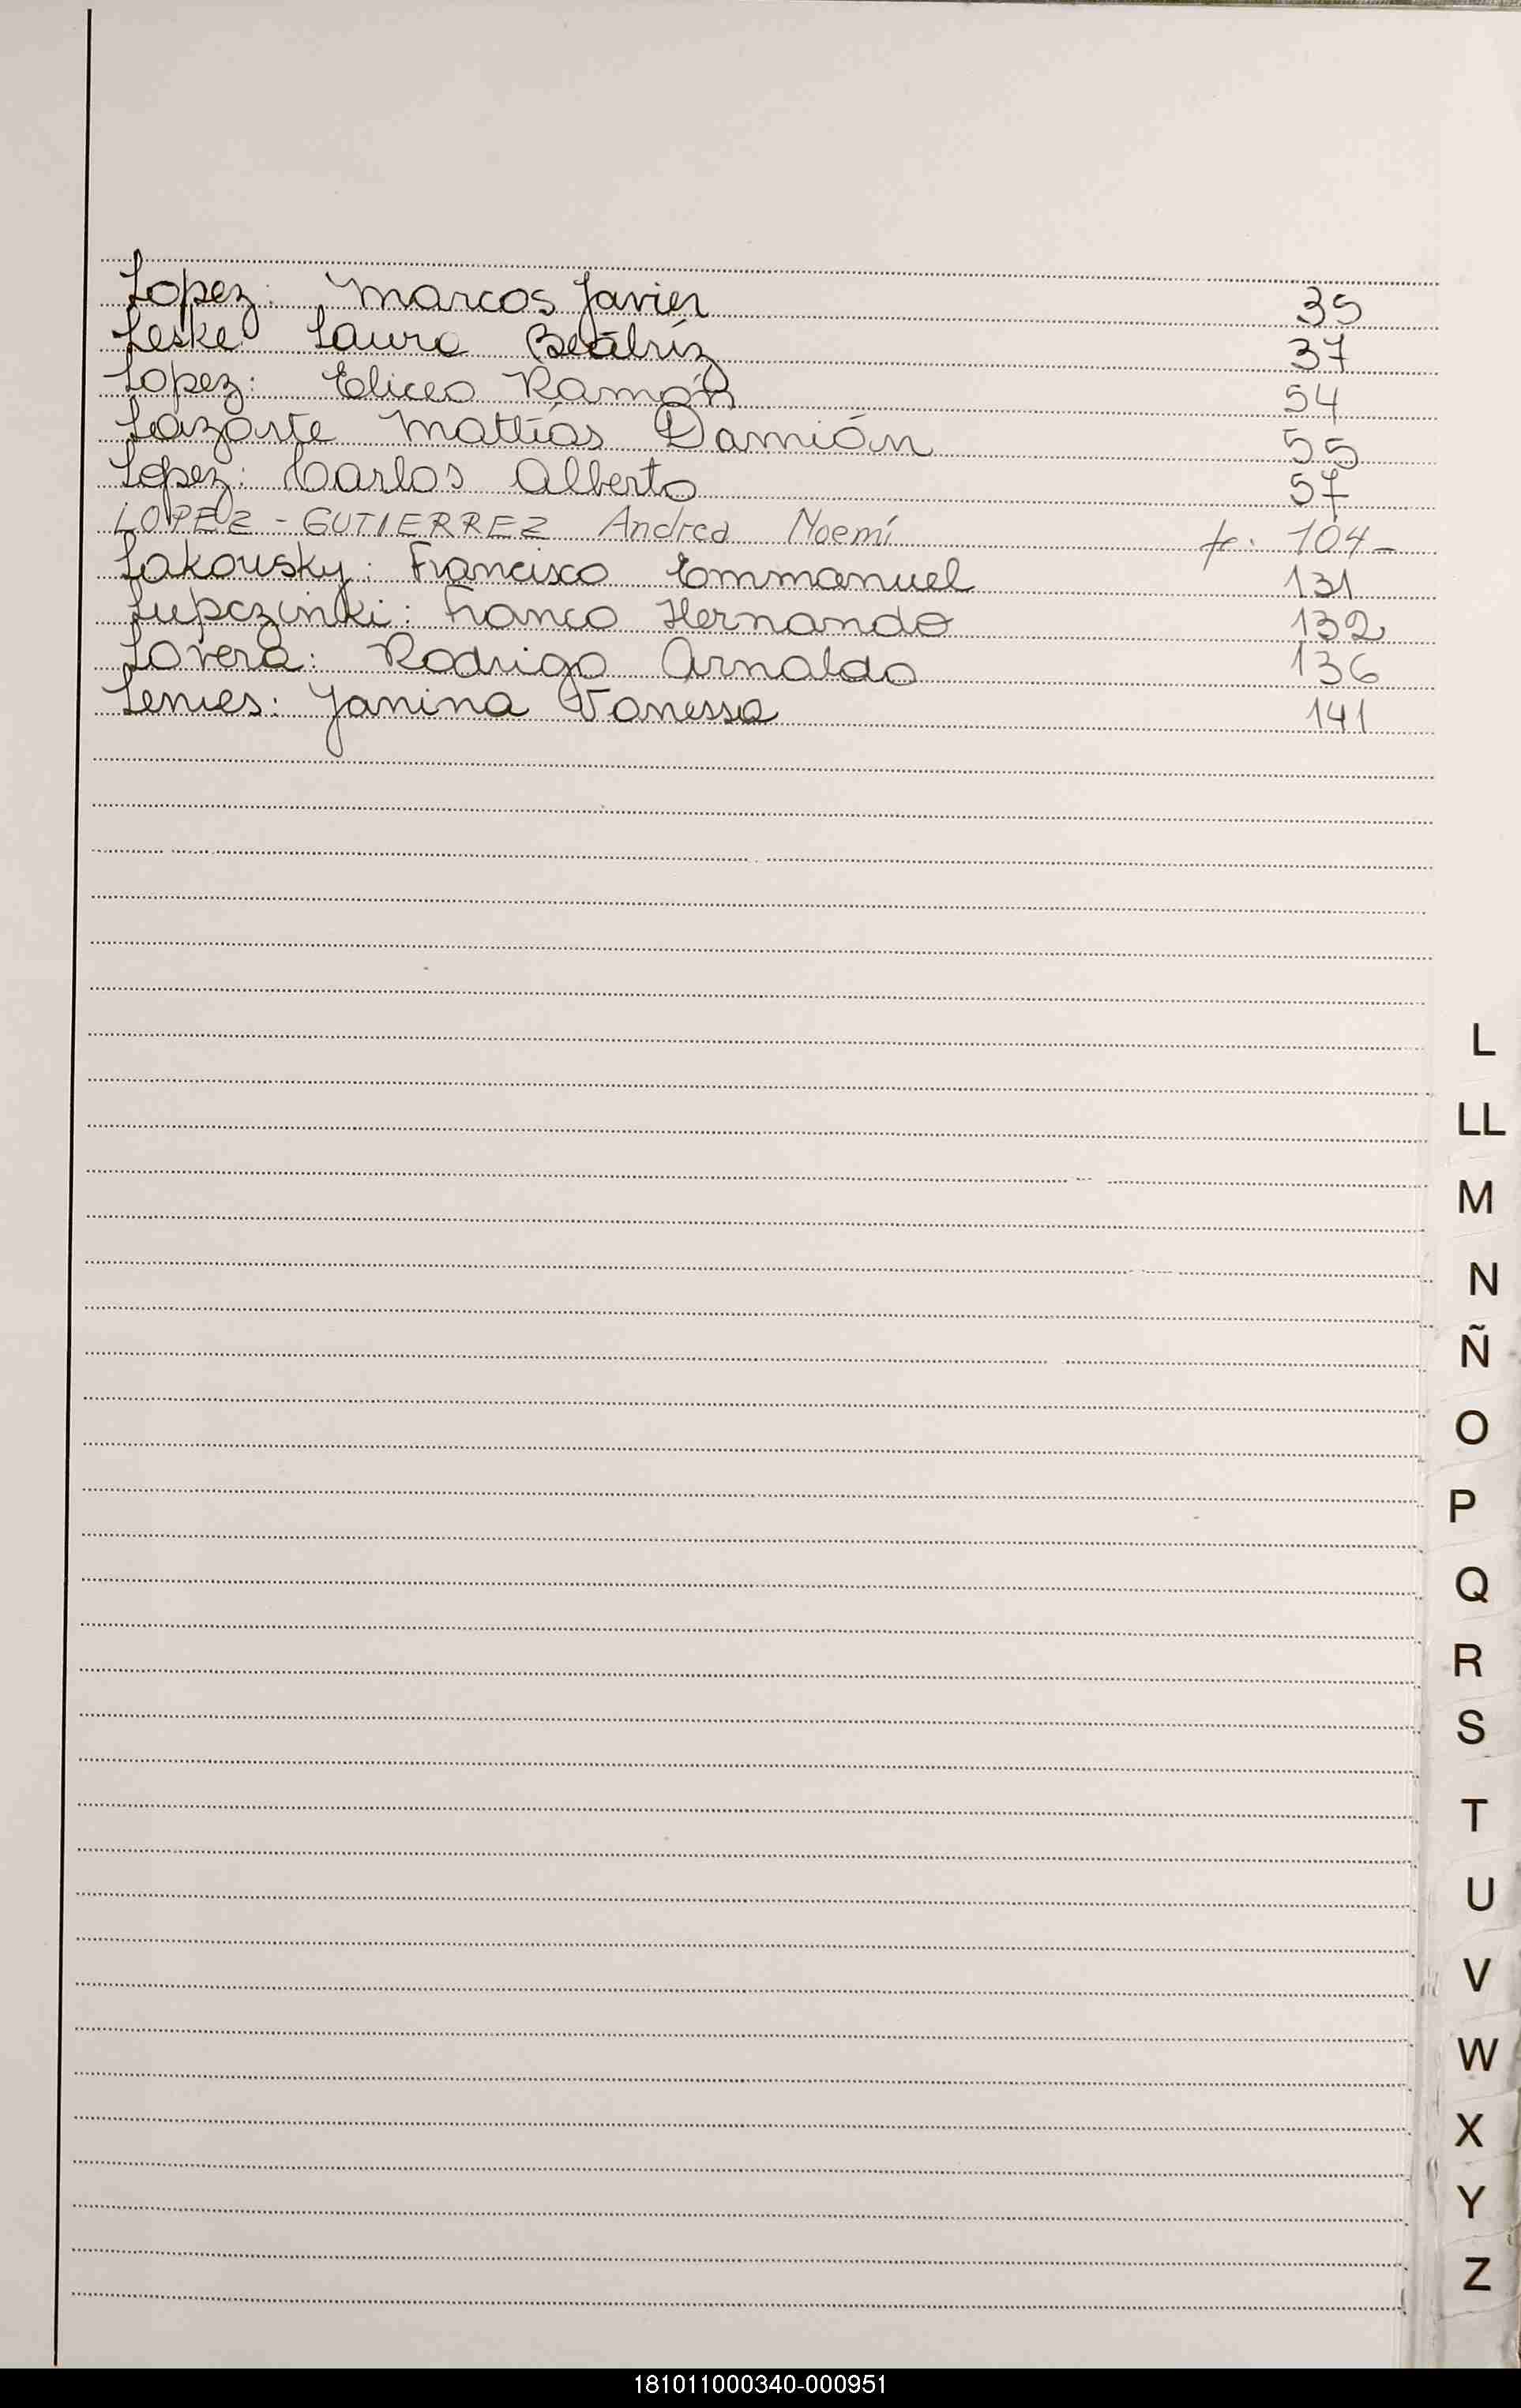 Lopez: Marcos Javier 35
Leske: Laura Beátriz 37
Lopez: Eliceo Ramón 54
Lazarte Mattías Damián 55
Lopez: Carlos Alberto 57
LOPEZ - GUTIERREZ Andrea Noemí fo. 104-
Lakousky: Francisco Emmanuel 131
Lupczinki: Franco Hernando 132
Lovera: Rodrigo Arnaldo 136
Lenies: Janina Vanessa 141
L
LL
M
N
Ñ
O
P
Q
R
S
T
U
V
W
X
Y
Z
181011000340-000951